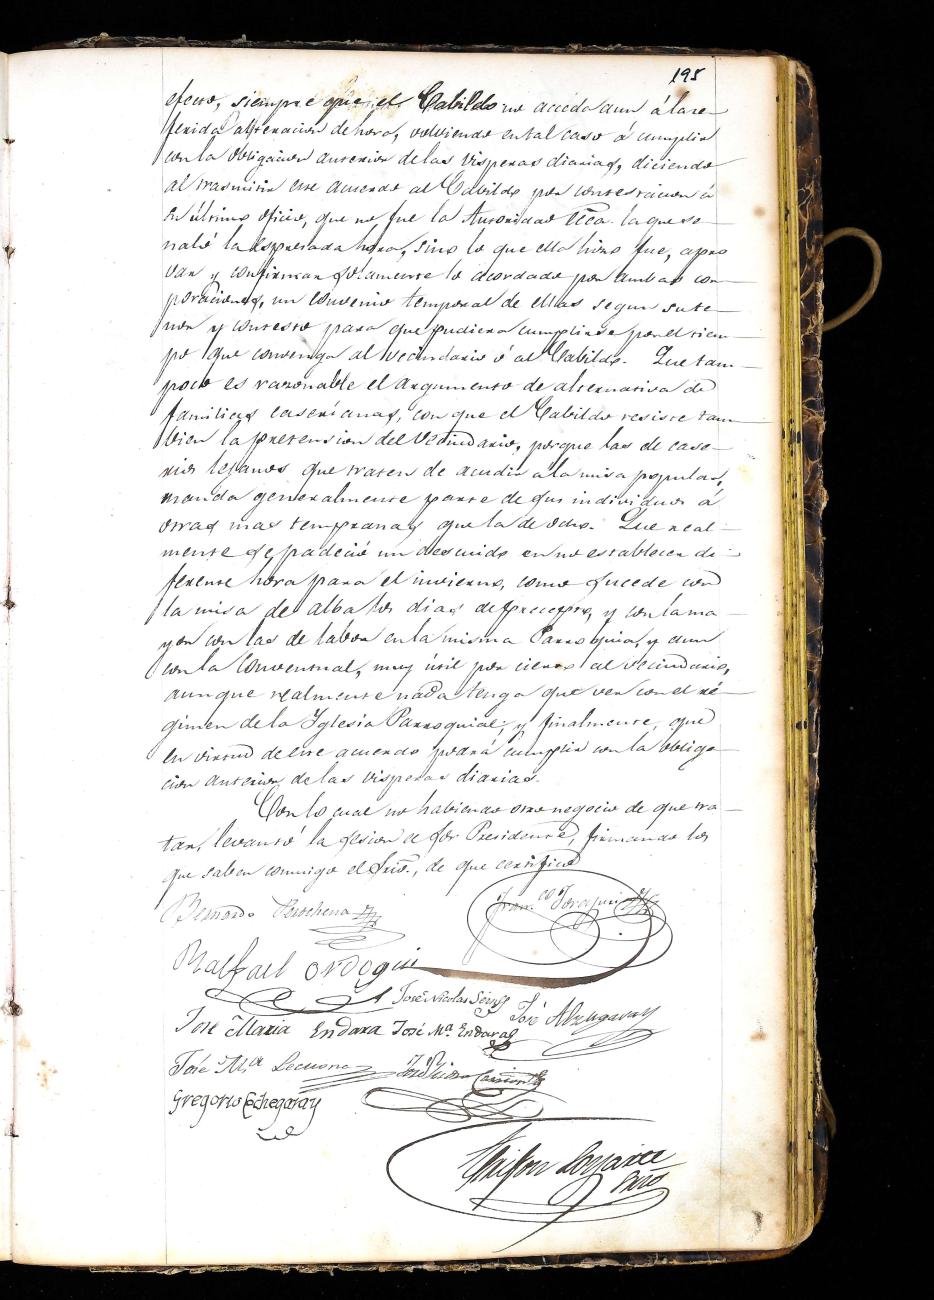 195
efecto, siempre que el Cabildo no acceda aun á la re-
ferida alteracion de hora, volviendo en tal caso á cumplir
con la obligacion anterior de las visperas diarias, diciendo
al trasmitir este acuerdo al Cabildo por contestacion á
su último oficio, que no fue la Autoridad Ecca. la que se-
naló la espresada hora, sino lo que ella hizo fue, apro
var y confirmar solamente lo acordado por ambas cor-
poraciones, un convenio temporal de ellas segun su te-
nor y contesto para que pudiera cumplirse por el tiem-
po que convenga al vecindario ó al Cabildo. Que tam-
poco es razonable el argumento de alternativa de
familias caserianas, con que el Cabildo resiste tam-
bien la pretension del Vecindario, porque las de case-
rios lejanos que traten de acudir a la misa popular,
manda generalmente parte de sus individuos á
otras mas tempranas que la de ocho. Que real-
mente se padeció un descuido en no establecer di-
ferente hora para el invierno, como sucede con
la misa de alba los dias de preceptos, y con la ma-
yor con las de labor en la misma Parroquia, y aun
con la Conventual, muy útil por cierto al vecindario,
aunque realmente nada tenga que ver con el ré-
gimen de la Yglesia Parroquial; y finalmente, que
en virtud de este acuerdo podrá cumplir con la obliga-
cion anterior de las visperas diarias.
Con lo cual no habiendo otro negocio de que tra-
tar, levantó la sesion el Sor Presidente, firmando los
que saben conmigo el Srio., de que certifico
Bernardo Franco. Joaquin
Rafael Ordoqui
José Nicolas José Alzugaray
José Maria Endara José Ma. Endara
José Ma. Lecuona
Gregorio Echegaray
Srio